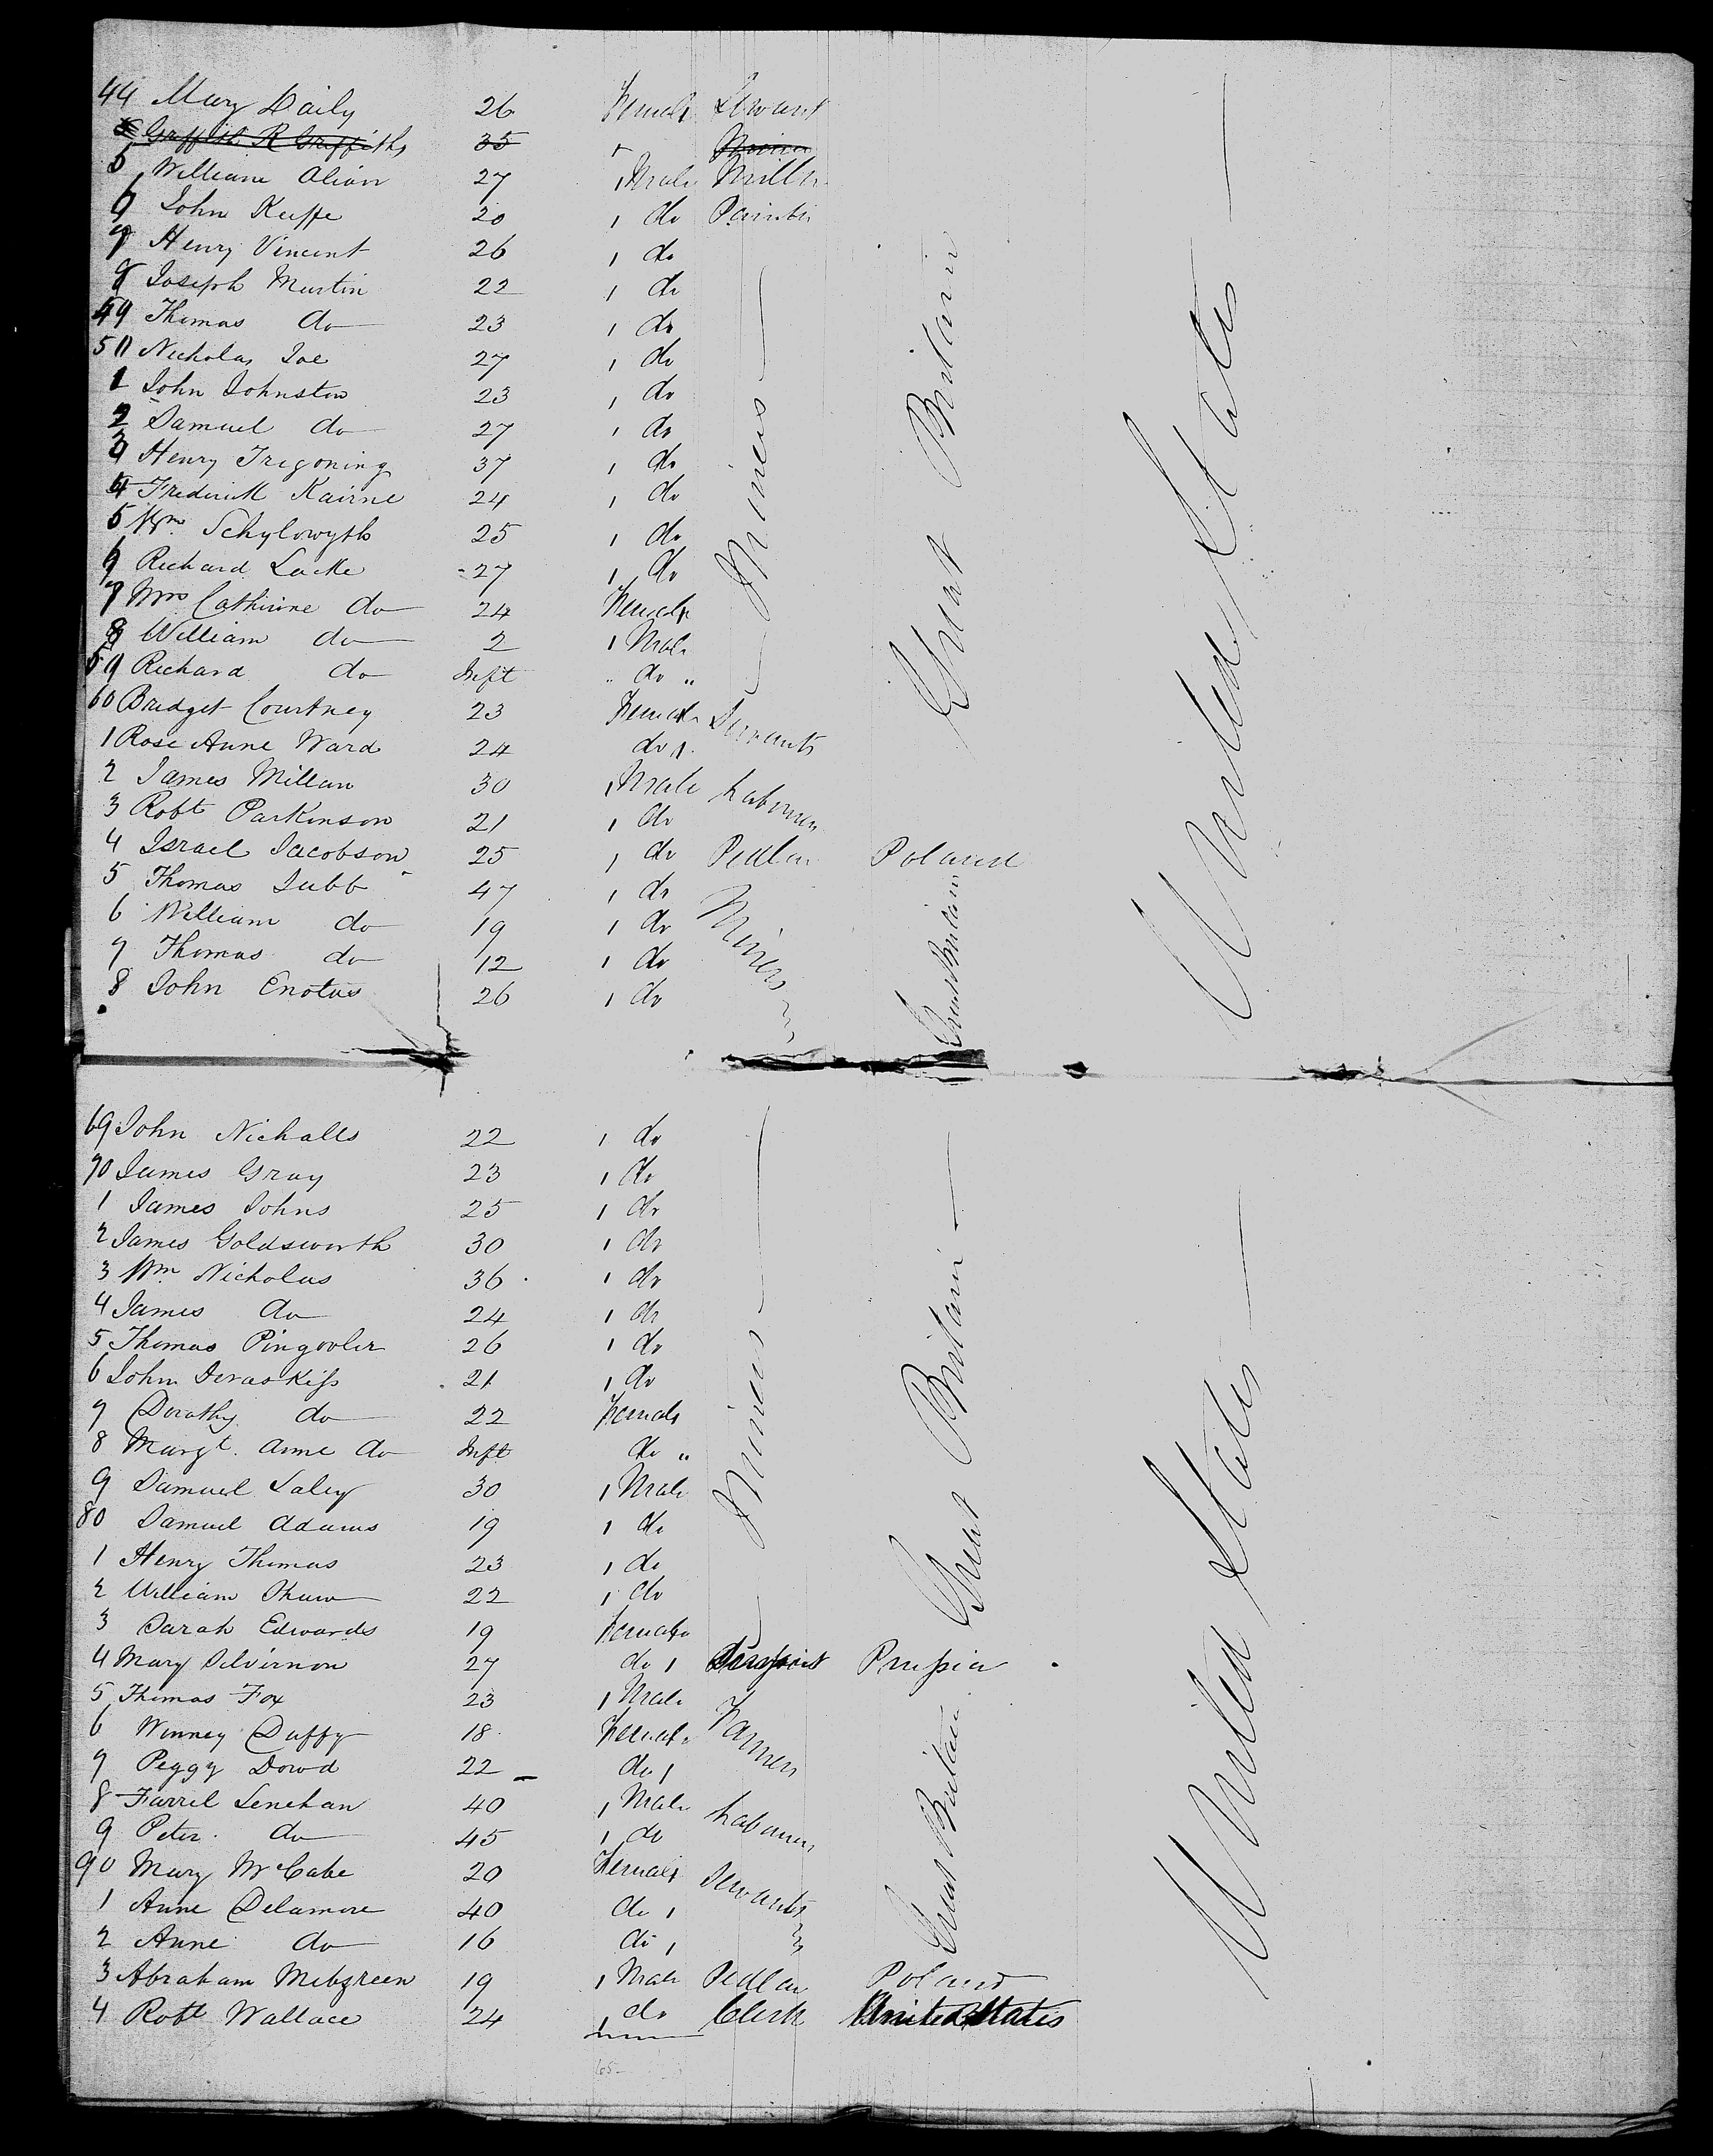 44 Mary Daily 26 Female Servant
Griffith R Griffiths 35 Miner
5 William Olion 27 Male Miller
6 John Keiffe 20 do Painter
7 Henry Vincent 26 do
8 Joseph Martin 22 do
49 Thomas do 23 do
50 Nicholas Joe 27 do
1 John Johnston 23 do
2 Samuel do 27 do
3 Henry Tregoning 37 do
4 Frederick Kairne 24 do
5 Wm Schylowyth 25 do
6 Richard Lacke 27 do
7 Mrs Catherine do 24 Female
8 William do 2 Male
59 Richard do Inft do
Miners
Great Britain
United States
60 Bridget Courtney 23 Female Servants
1 Rose Anne Ward 24 do
2 James Millan 30 Male Labourers
3 Robt Parkinson 21 do
4 Israel Jacobson 25 do Pedlar Poland
5 Thomas Jubb 47 do
6 William do 19 do Miners
7 Thomas do 12 do Great Britain
8 John Enotus 26 do
69 John Nicholls 22 do
70 James Gray 23 do
1 James Johns 25 do
2 James Goldsworth 30 do
3 Wm Nicholas 36 do
4 James do 24 do
5 Thomas Pingooler 26 do
6 John 21 do
7 Dorothy do 22 Female
8 Margt. Anne do Inft do
9 Samuel Saley 30 Male
80 Samuel Adams 19 do
1 Henry Thomas 23 do
2 William Shaw 22 do
3 Sarah Edwards 19 Female
Miners
Great Britain
United States
4 Mary Silvernon 27 do Servant Prussia
5 Thomas Fox 23 Male Farmers
6 Winney Duffy 18 Female
7 Peggy Dowd 22 do
8 Farrel Lenehan 40 Male Labourers
9 Peter do 45 do
90 Mary McCabe 20 Female Servants
1 Anne Delamere 40 do
2 Anne do 16 do
Great Britain
3 Abraham Mebgreen 19 Male Pedlar Poland
4 Robt Wallace 24 do Clerk United States